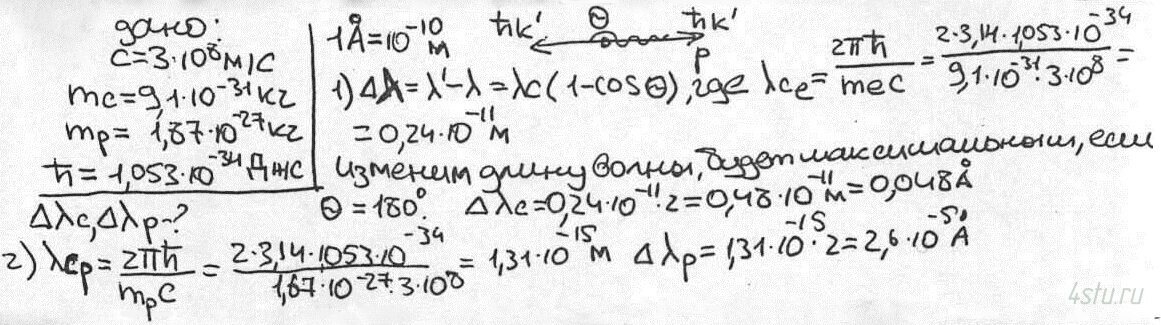 дано:
c=3·10⁸м/с
mc=9,1·10⁻³¹кг
mp=1,67·10⁻²⁷кг
ħ=1,053·10⁻³⁴Джс
Δλc,Δλp-?
1Å=10⁻¹⁰м
ħk' Θ ħk'
p
1) Δλ=λ'-λ=λc(1-cosΘ), где λce=2πħ/mec=2·3,14·1,053·10⁻³⁴/9,1·10⁻³¹·3·10⁸=
=0,24·10⁻¹¹м
изменим длину волны, будет максимальным, если
Θ=180°. Δλc=0,24·10⁻¹¹·2=0,48·10⁻¹¹м=0,048Å
2) λcp=2πħ/mpc=2·3,14·1,053·10⁻³⁴/1,67·10⁻²⁷·3·10⁸=1,31·10⁻¹⁵м Δλp=1,31·10⁻¹⁵·2=2,6·10⁻⁵Å
4stu.ru